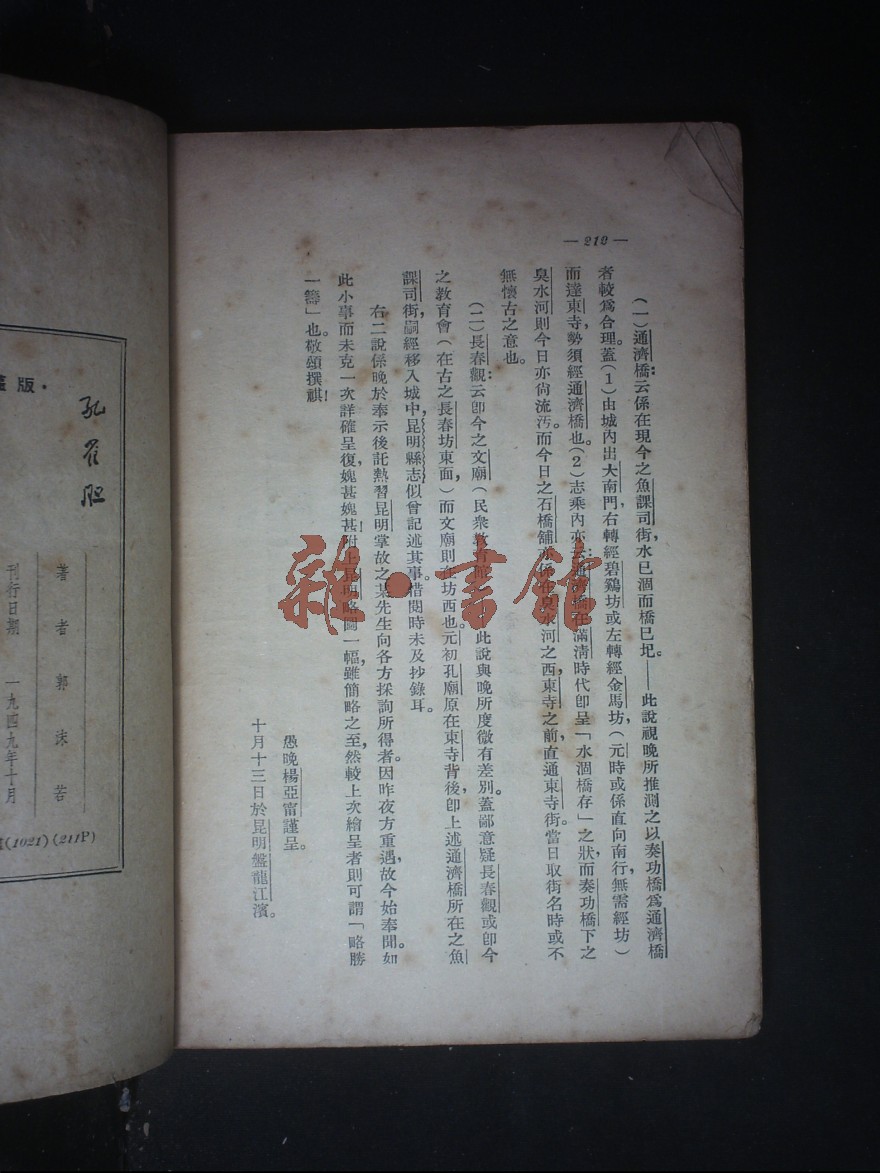 — 219 —
(一)通濟橋:云係在現今之魚課司街,水已涸而橋已圮。——此說視晚所推測之以奏功橋爲通濟橋
者較爲合理。蓋(1)由城內出大南門,右轉經碧鷄坊或左轉經金馬坊,(元時或係直向南行,無需經坊)
而達東寺,勢須經通濟橋也。(2)志乘內亦云:通濟橋在滿淸時代卽呈「水涸橋存」之狀,而奏功橋下之
臭水河則今日亦尙流汚。而今日之石橋舖亦係在臭水河之西,東寺之前,直通東寺街。當日取街名時或不
無懷古之意也。
(二)長春觀:云卽今之文廟(民衆敎育館)此說與晚所度微有差別。蓋鄙意疑長春觀或卽今
之敎育會(在古之長春坊東面,)而文廟則在坊西也。元初孔廟原在東寺背後,卽上述通濟橋所在之魚
課司街,嗣經移入城中,昆明縣志似曾記述其事。惜閱時未及抄錄耳。
右二說係晚於奉示後託熱習昆明掌故之某先生向各方採詢所得者。因昨夜方重遇,故今始奉聞。如
此小事而未克一次詳確呈復,媿甚媿甚!附上昆明略圖一幅,雖簡略之至,然較上次繪呈者則可謂「略勝
一籌」也。敬頌撰祺!
愚晚楊亞甯謹呈。
十月十三日於昆明盤龍江濱。
版·
孔雀胆
著者 郭沫若
刊行日期 一九四九年十月
(1021)(211P)
雜·書館